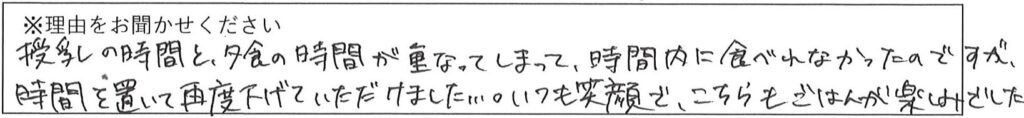 ※理由をお聞かせください
授乳の時間と、夕食の時間が重なってしまって、時間内に食べれなかったのですが、
時間を置いて再度下げていただけました…。いつも笑顔で、こちらもごはんが楽しみでした